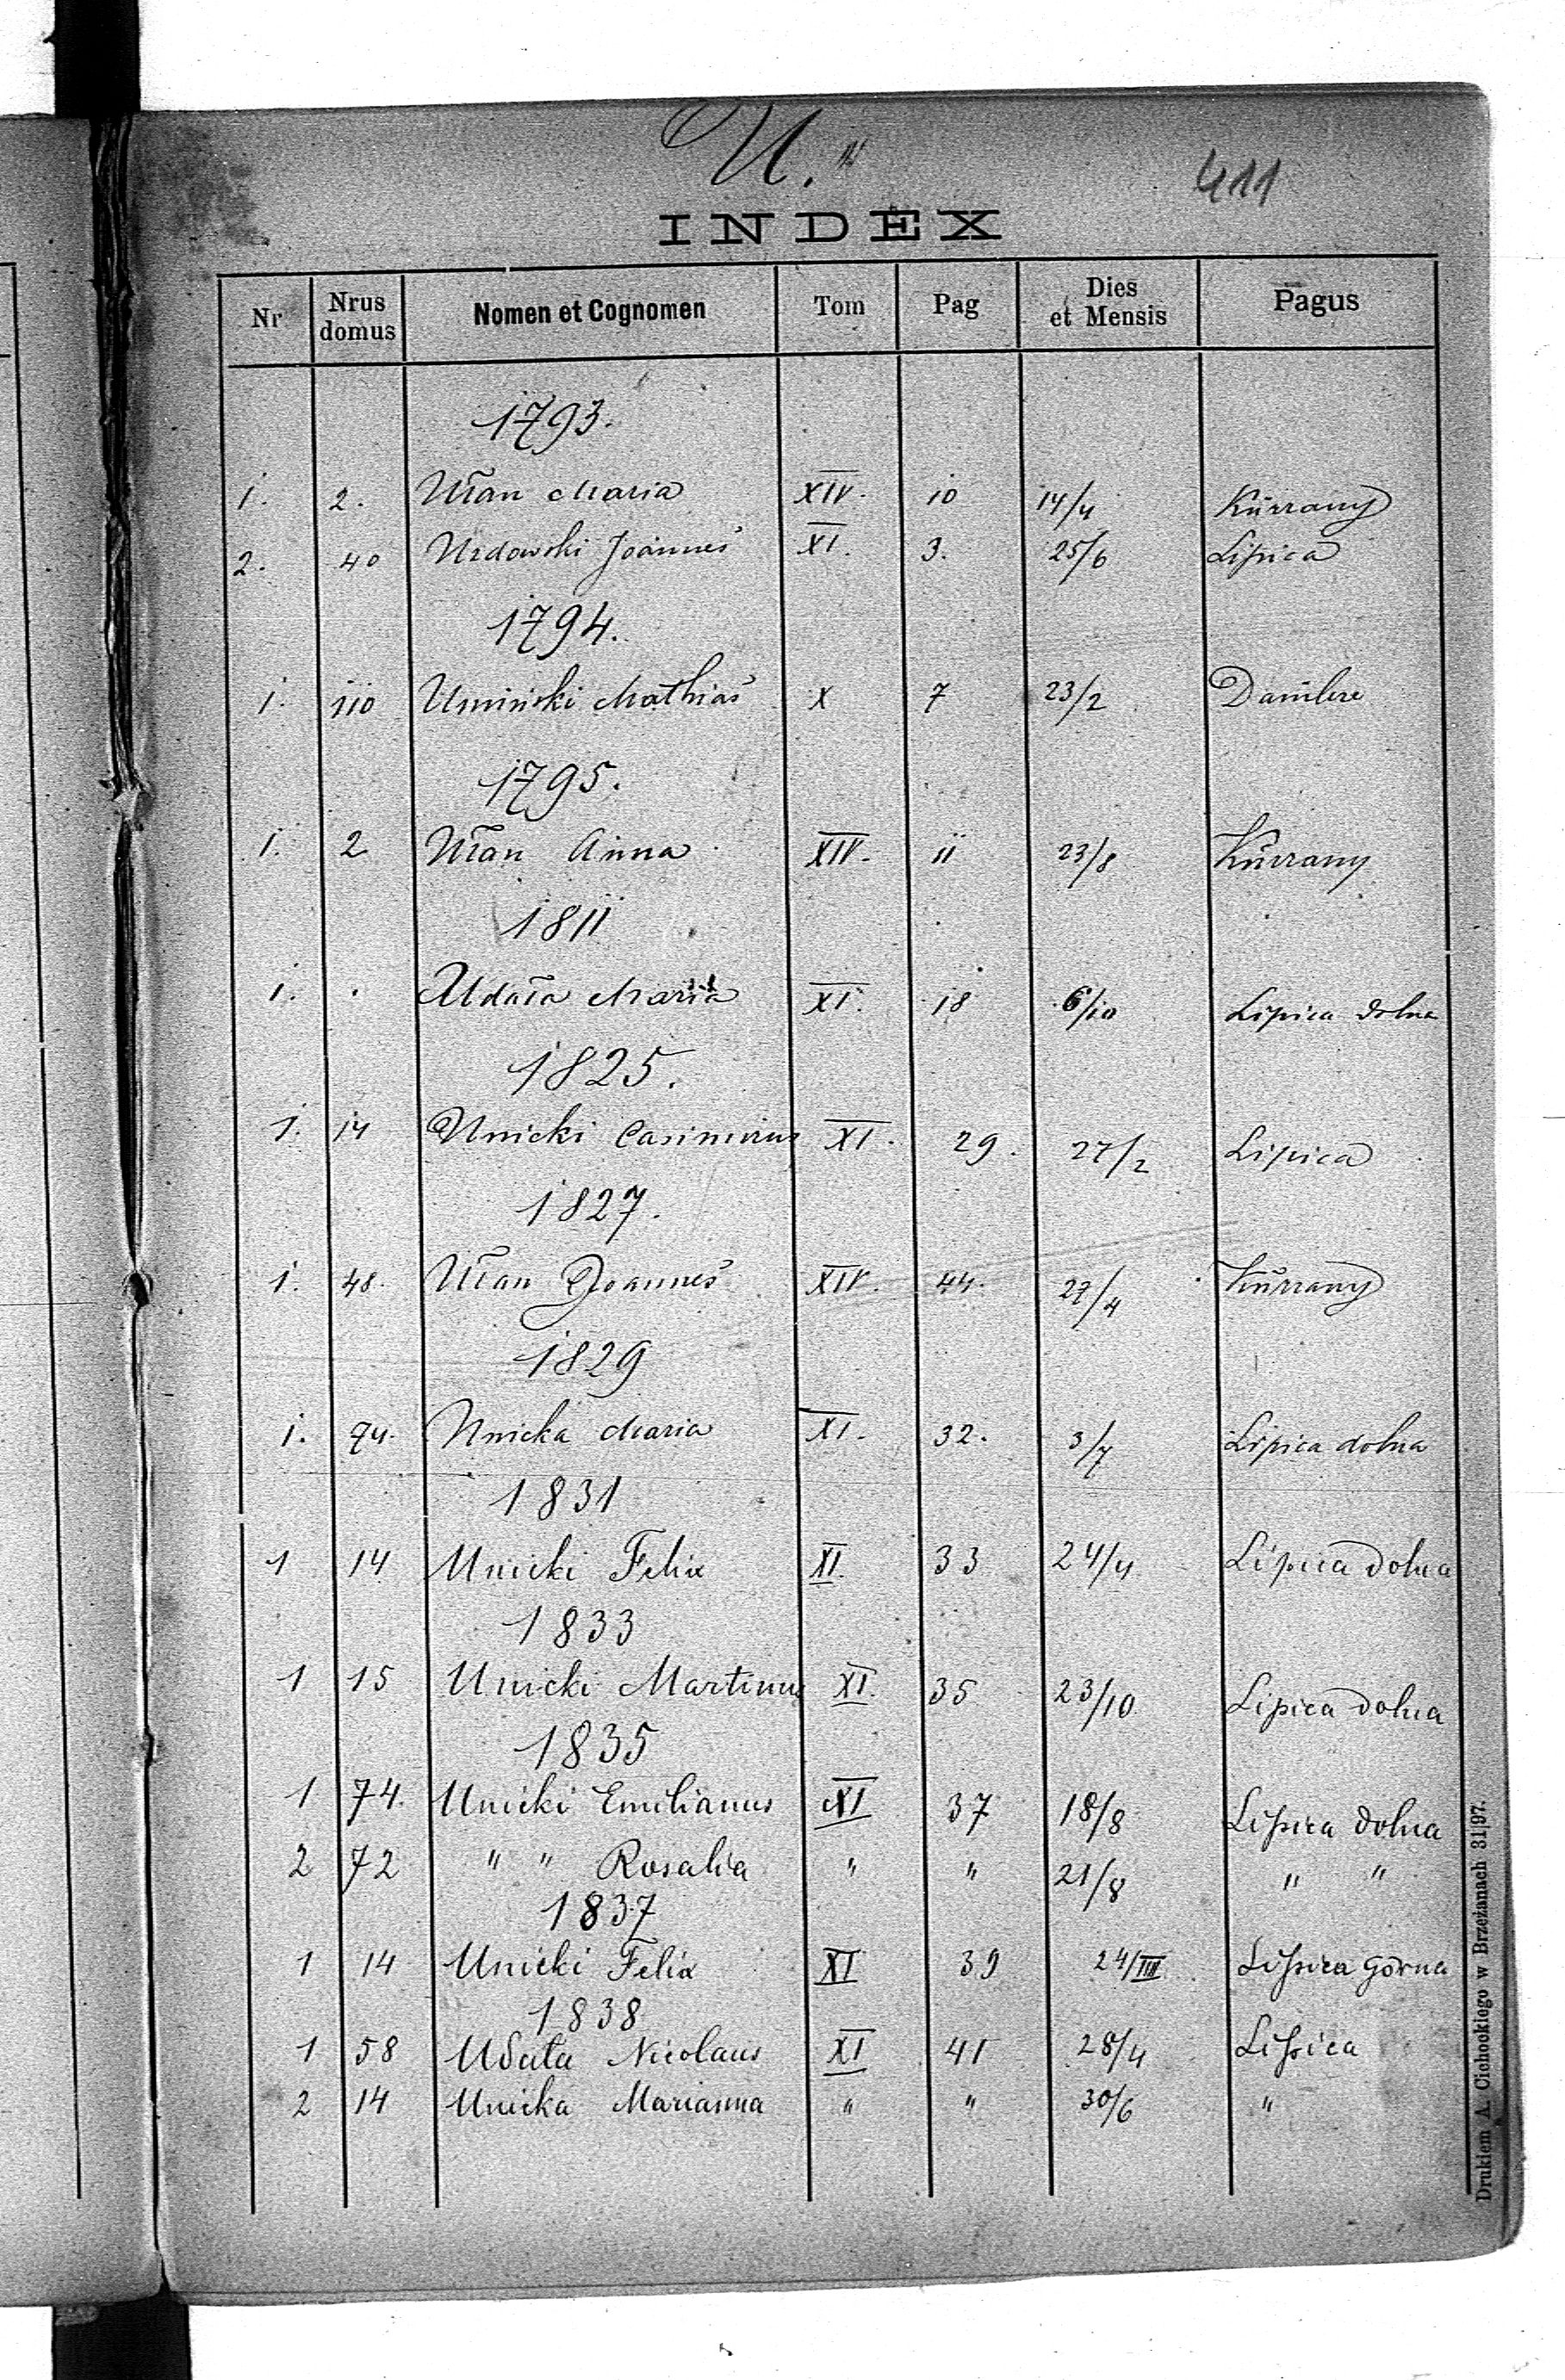 U.
411
INDEX
Nr Nrus domus Nomen et Cognomen Tom Pag Dies et Mensis Pagus
1793.
1. 2. Ułan Maria XIV. 10 14/4 Kurrany
2. 40 Urdowski Joannes XI. 3. 25/6 Lipica
1794.
1. 110 Umiński Mathias X 7 23/2 Danilcze
1795.
1. 2 Ułan Anna XIV. 11 23/8 Kurrany
1811
1. . Udała Maria XI. 18 6/10 Lipica dolna
1825.
1. 14 Unicki Casimirus XI. 29. 27/2 Lipica
1827.
1. 48. Ułan Joannes XIV. 44. 27/4 Kurrany
1829
1. 74. Unicka Maria XI. 32. 3/7 Lipica dolna
1831
1 14 Unicki Felix XI. 33 24/4 Lipica dolna
1833
1 15 Unicki Martinus XI. 35 23/10 Lipica dolna
1835
1 74. Unicki Emilianus XI 37 18/8 Lipica dolna
2 72 " " Rosalia " " 21/8 " "
1837
1 14 Unicki Felix XI 39 24/III Lipica górna
1838
1 58 Udała Nicolaus XI 41 28/4 Lipica
2 14 Unicka Marianna " " 30/6 "
Drukiem A. Cichockiego w Brzeżanach 31|97.